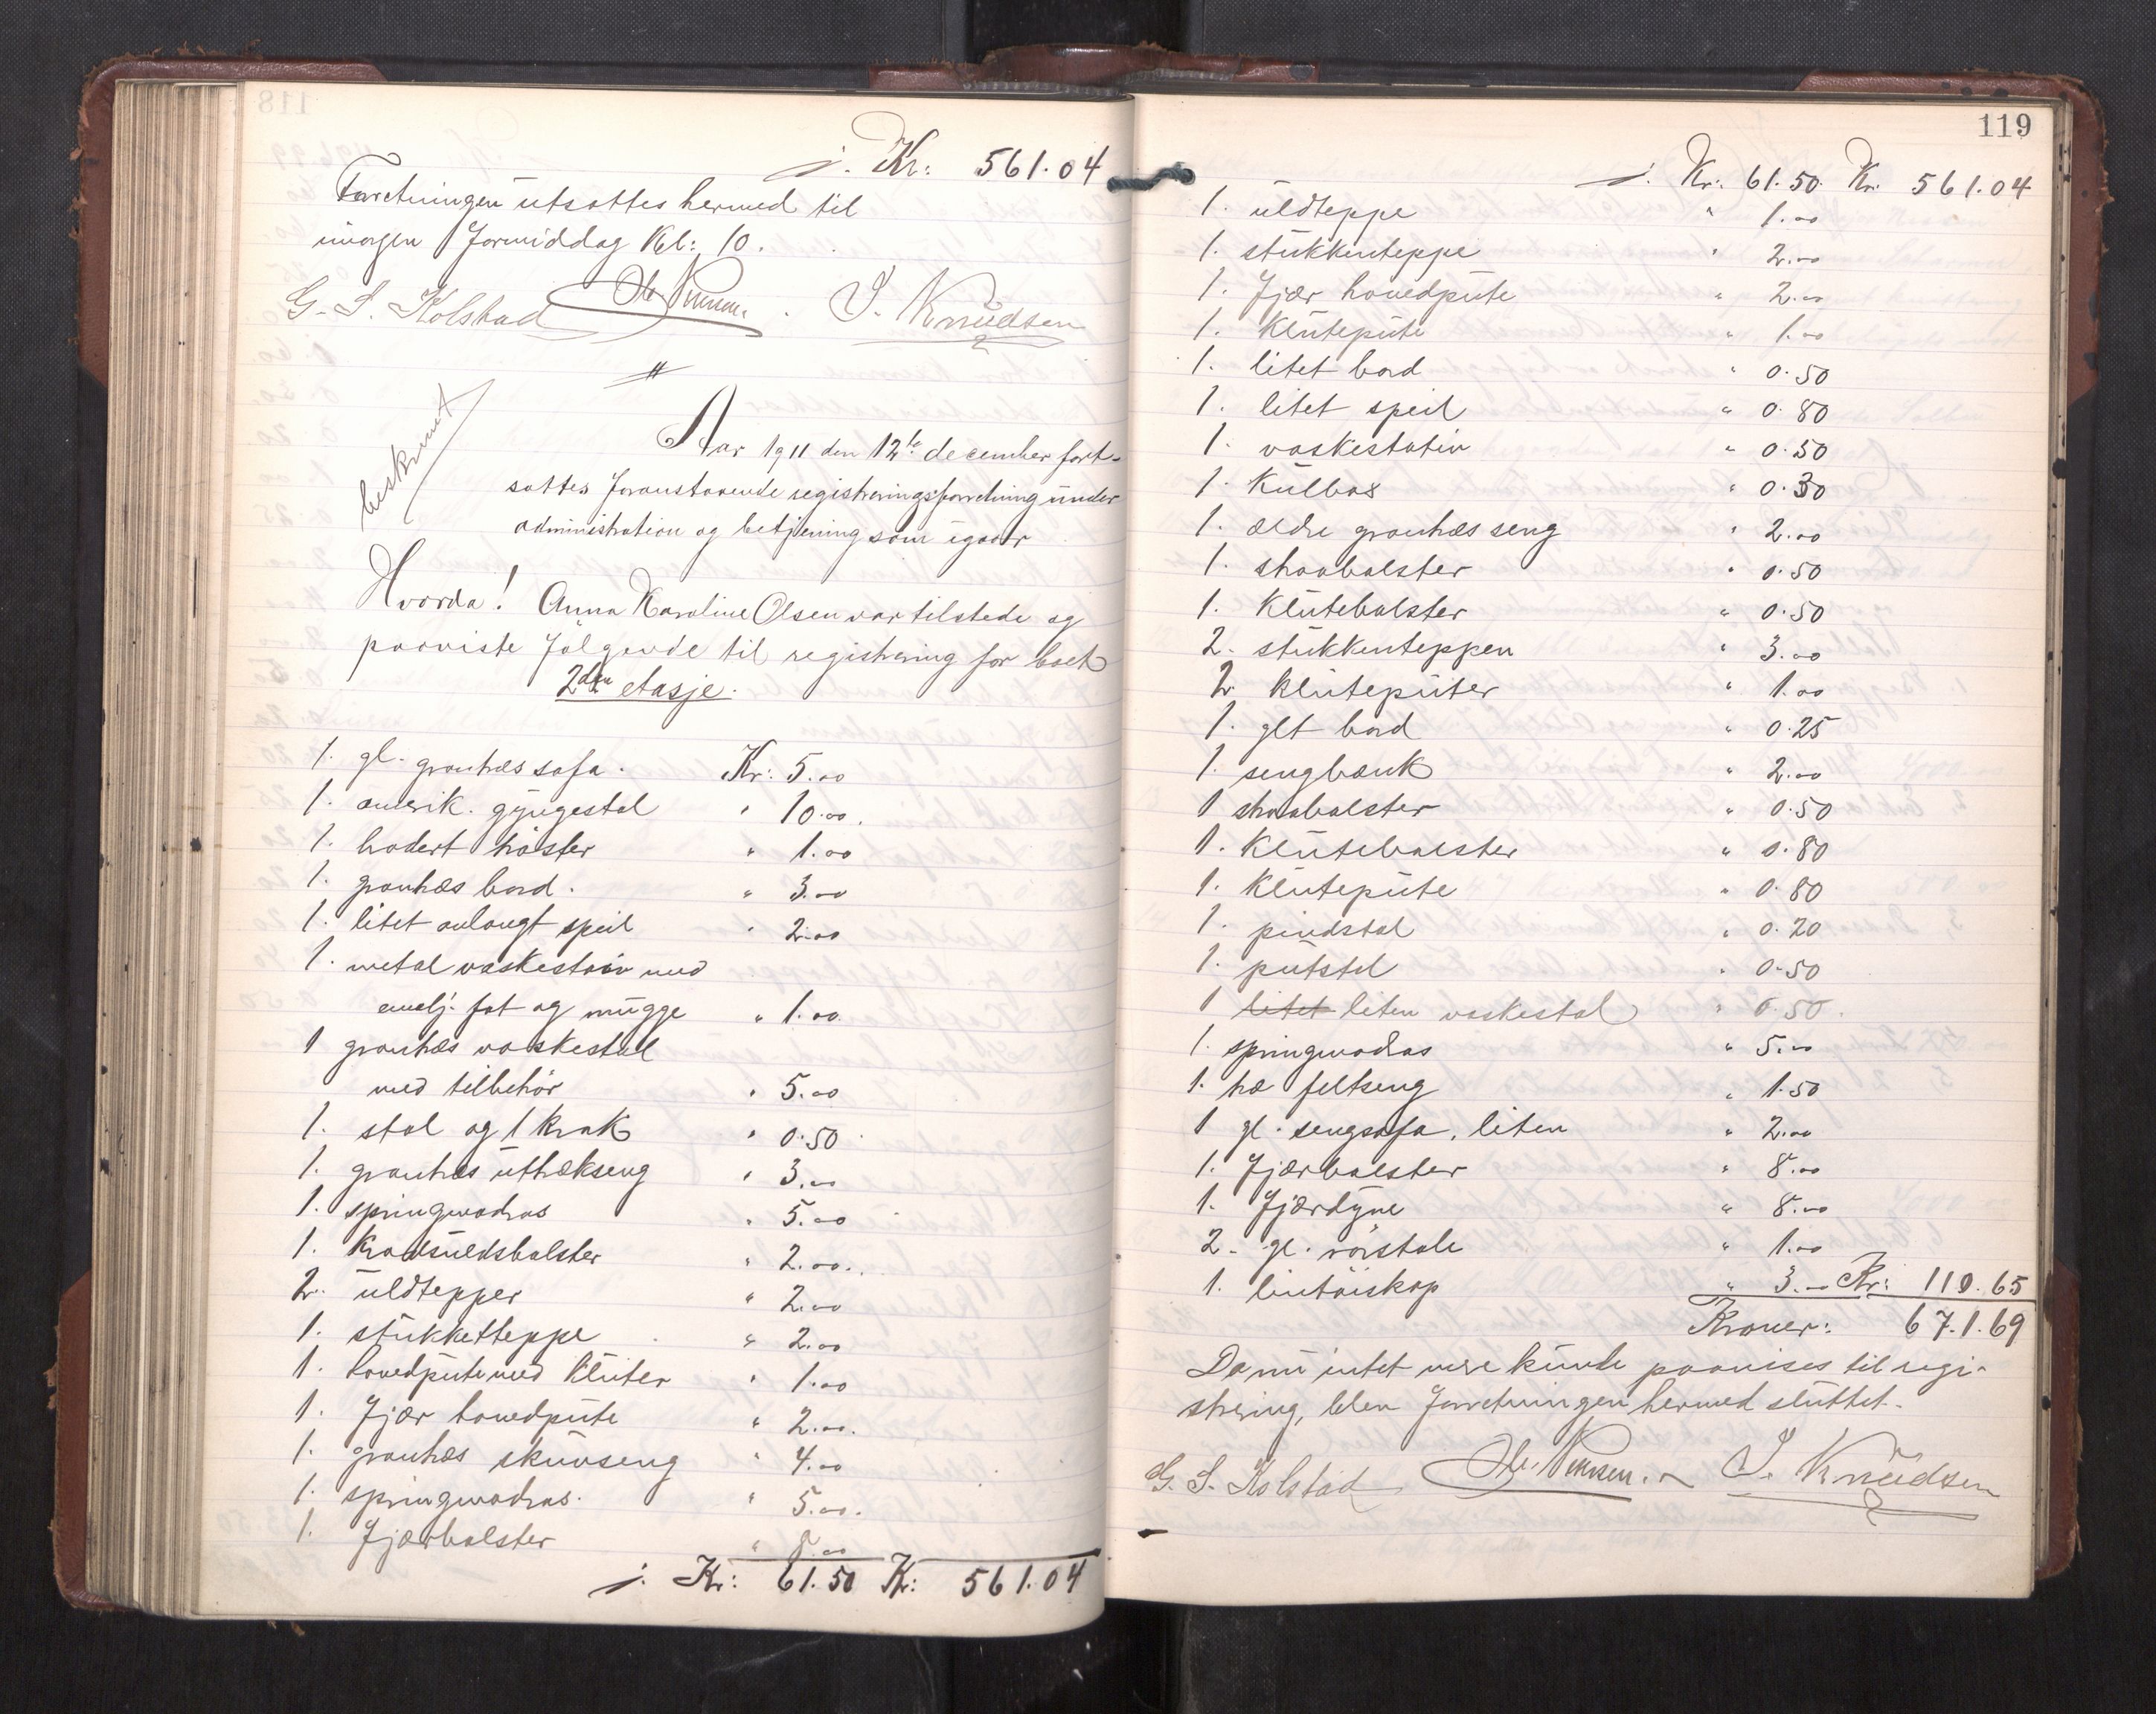 j. Kr: 561.04
Forretningen utsattes hermed til
imorgen formiddag Kl: 10.
G. S. Kolstad J. Knudsen
beskrevet
Aar 1911 den 12te december fort-
sattes foranstaaende registreringsforretning under
administration og betjening som igaar
Hvorda! Anna Karoline Olsen var tilstede og
paaviste følgende til registrering for boet
2den etasje.
1. gl. granhæs sofa. Kr: 5.00
1. amerik. gyngestol " 10.00.
1. broderi
1. granhæs bord. " 3.00
1. litet avlangt speil " 2.00
1. metal vaskestativ med
emalj. fat og mugge " 1.00
1 granhæs vaskestol
med tilbehør " 5.00
1. stol og 1 krak " 0.50
1. granhæs uttrækseng " 3.00
1. springmadras " 5.00
1. Kradsuldsbolster " 2.00.
2. uldtepper " 2.00
1. stukketteppe " 2.00
1. hovedpute med kluter " 1.00
1. Fjær hovedpute " 2.00.
1. granhæs skuvseng " 4.00
1. springmadras. " 5.00.
1. Fjærbolster " 8.00
j. Kr: 61.50 Kr: 561.04
119
j. Kr: 61.50. Kr. 561.04
1. uldteppe " 1.00
1. stukkenteppe " 2.00
1. Fjær hovedpute " 2.00
1. Klutepute " 1.00
1. litet bord " 0.50
1. litet speil " 0.80
1. vaskestativ " 0.50
1. Kulbox " 0.30
1. ældre granhæs seng " 2.00
1. straabolster " 0.50
1. Klutebolster " 0.50
2. stukkenteppen " 3.00
2. kluteputer " 1.00
1. glt bord " 0.25
1. sengbænk " 2.00
1 straabolster " 0.50
1. Klutebolster " 0.80
1. Klutepute " 0.80
1. pindstol " 0.20
1. putstol " 0.50
1 litet liten vaskestol " 0.50.
1. springmadras " 5.00
1. træ feltseng " 1.50
1 gl. sengsofa, liten " 2.00
1. Fjærbolster " 8.00
1. Fjærdyne " 8.00
2. gl. rørstole " 1.00
1. lintøiskap " 3.— Kr: 110.65
Kroner: 671.69
Da nu intet mere kunde paavises til regi-
strering, blev forretningen hermed sluttet.
G. S. Kolstad J. Knudsen